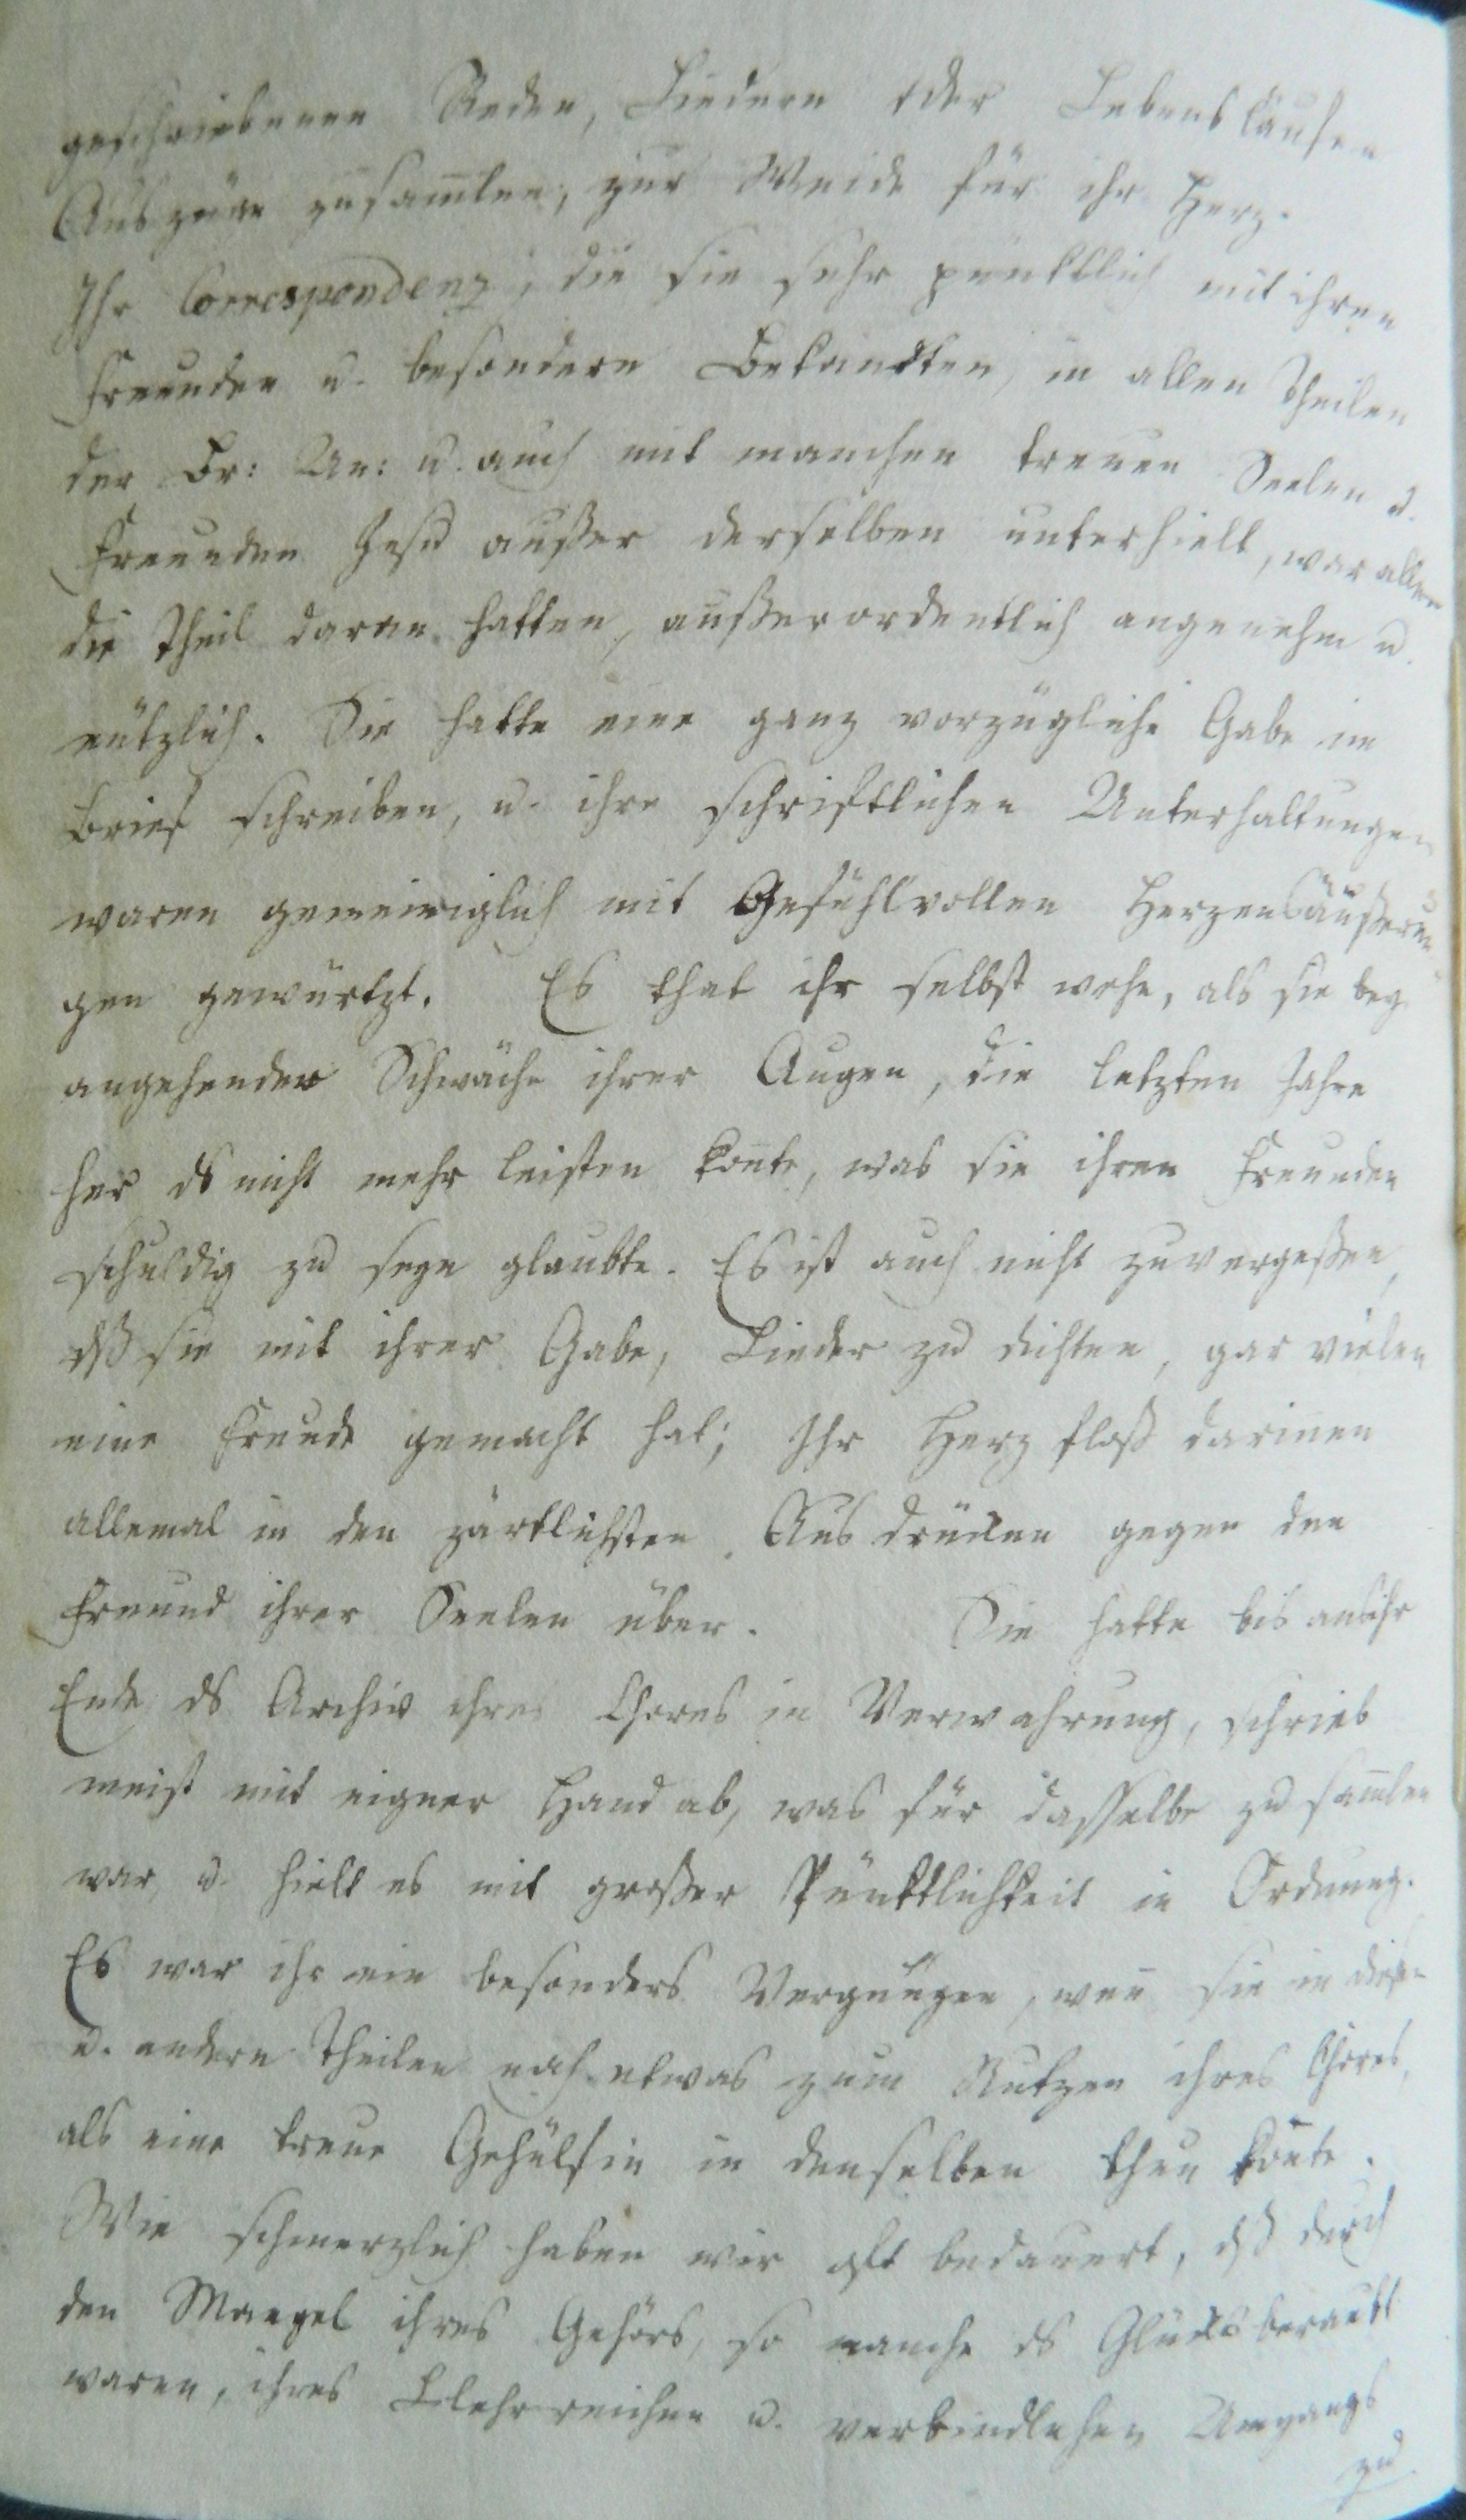 geschriebenen Reden, Liedern oder Lebensläufen
Auszüge zusam̅len, zur Weide für ihr Herz.
Ihr Correspondenz, die sie sehr pünktlich mit ihren
Freunden u. besondern Bekandten, in allen Theilen
der Br: Un: u. auch mit manchen treuen Seelen u.
Freunden Jesu außer derselben unterhielt, war allen
die Theil daran hatten, außerordentlich angenehm u.
nützlich. Sie hatte eine ganz vorzügliche Gabe im
Brief schreiben, u. ihre schriftlichen Unterhaltungen
waren gemeiniglich mit Gefühlvollen Herzensäußerun
gen gewürtzt. Es that ihr selbst wehe, als sie bey
angehender Schwäche ihrer Augen, die letzten Jahre
her ds nicht mehr leisten kon̅te, was sie ihren Freunden
schuldig zu seyn glaubte. Es ist auch nicht zuvergeßen,
dß sie mit ihrer Gabe, Lieder zu dichten, gar vielen
eine Freude gemacht hat; Ihr Herz floß darinnen
allemal in den zärtlichsten Ausdrücken gegen den
Freund ihrer Seelen über. Sie hatte bis ans ihr
Ende ds Archiv ihres Chores in Verwahrung, schrieb
meist mit eigner Hand ab, was für dasselbe zu sam̅len
war, u. hielt es mit großer Pünktlichkeit in Ordnung.
Es war ihr ein besonders Vergnügen, wen̅ sie in diesen
u. andern Theilen noch etwas zum Nutzen ihres Chores,
als eine treue Gehülfin in denselben thun kon̅te.
Wie schmerzlich haben wir oft bedauert, dß durch
den Mangel ihres Gehörs, so manche ds Glücks beraubt
waren, ihres Llehrreichen u. verbindlichen Umgangs
zu